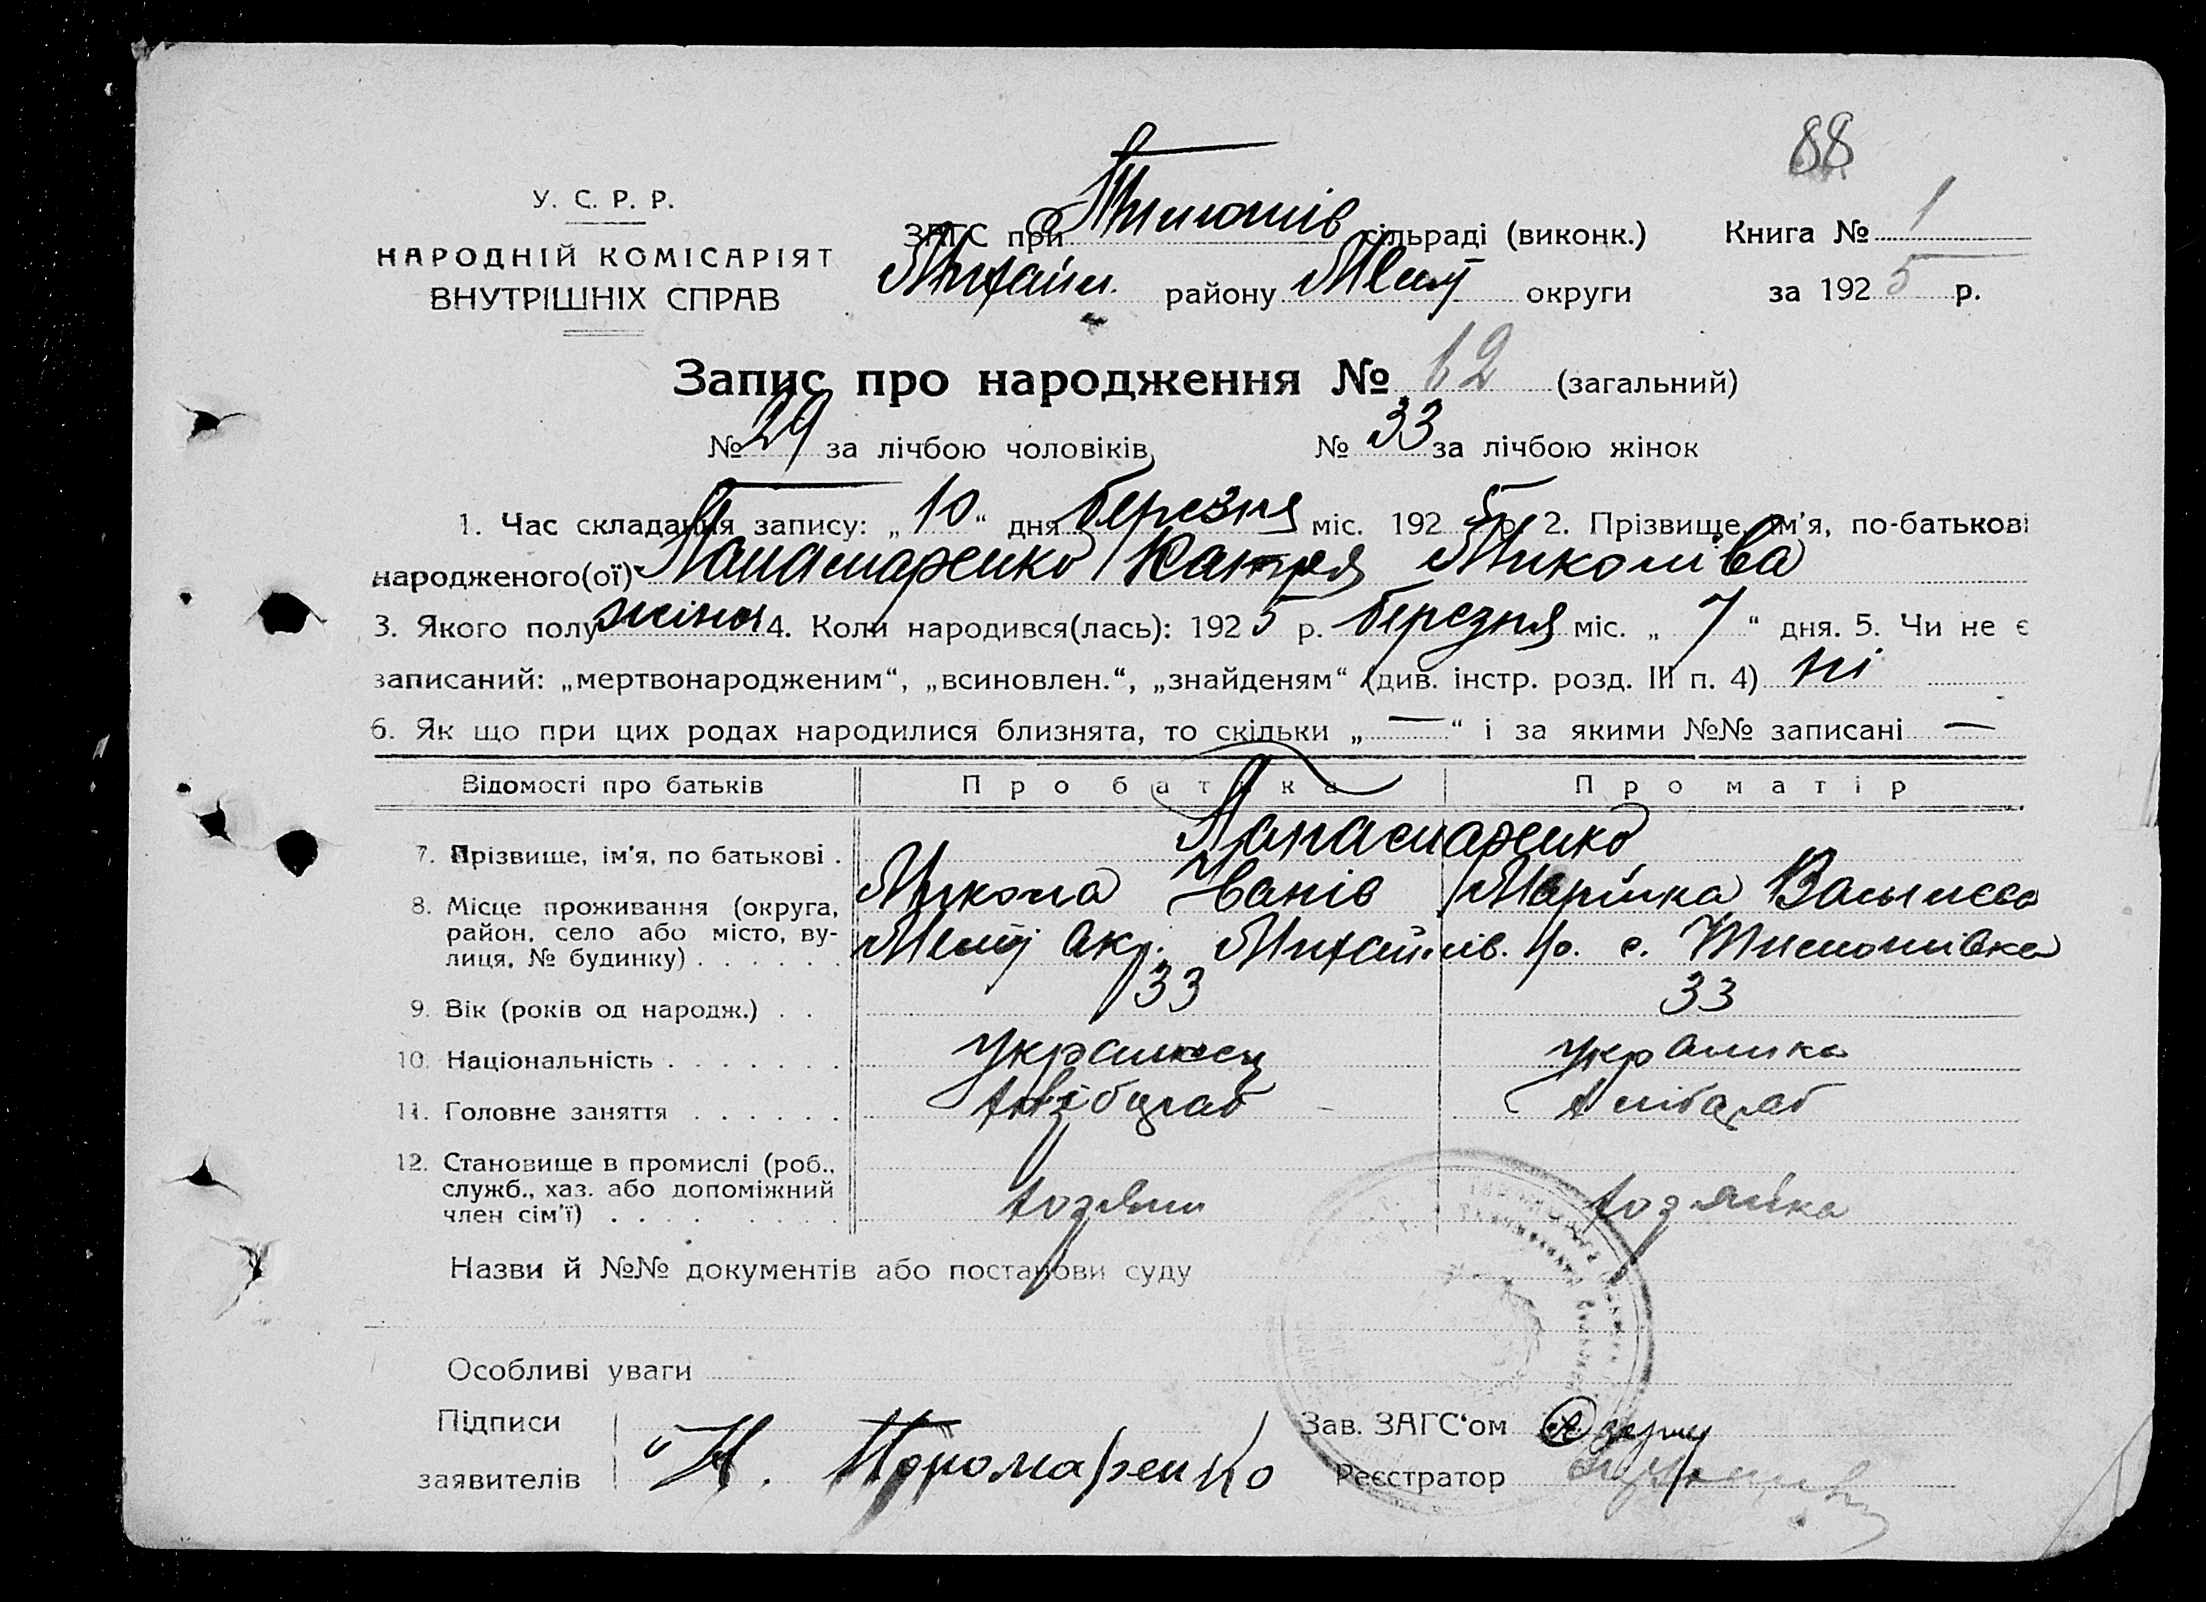 88
У. С. Р. Р.
НАРОДНІЙ КОМІСАРІЯТ
ВНУТРІШНІХ СПРАВ
ЗАГС при Тимошів сільраді (виконк.) Книга № 1
Михайл. району Меліт округи за 1925 р.
Запис про народження № 62 (загальний)
№ 29 за лічбою чоловіків № 33 за лічбою жінок
1. Час складання запису: „10“ дня березня міс. 1925 р. 2. Прізвище, ім'я, по-батькові
народженого(ої) Панамаренко Катря Миколівa
3. Якого полу жіноч 4. Коли народився(лась): 1925 р. березня міс. „7“ дня. 5. Чи не є
записаний: „мертвонародженим“, „всиновлен.“, „знайденям“ (див. інстр. розд. III п. 4) ні
6. Як що при цих родах народилися близнята, то скільки „—“ і за якими №№ записані —
Відомості про батьків Про батька Про матір
7. Прізвище, ім'я, по батькові . Панамаренко
Микола Іванів Марійка Васылева
8. Місце проживання (округа,
район, село або місто, ву-
лиця, № будинку) . . . . . . Меліт окр. Михайлів. р. с. Тимошівка
9. Вік (років од народж.) . . 33 33
10. Національність . . . . . . . українец українка
11. Головне заняття . . . . . . хлібораб хлібараб
12. Становище в промислі (роб.,
служб., хаз. або допоміжний
член сім'ї) . . . . . . . . . хозяин хозяйка
Назви й №№ документів або постанови суду
Особливі уваги
Підписи Зав. ЗАГС'ом
заявителів Н. Поромаренко Реєстратор